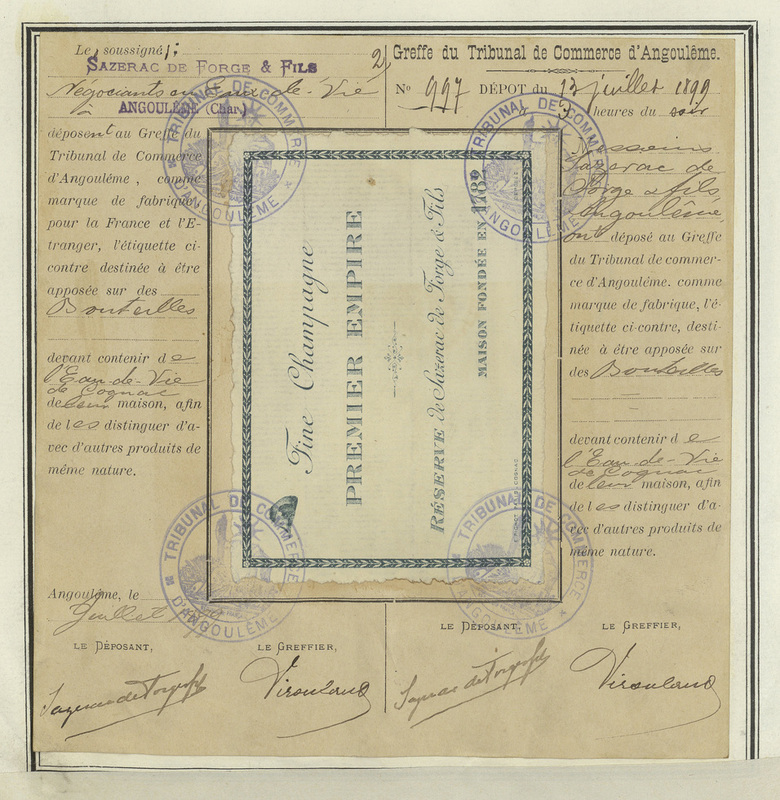 Le soussigné s:
SAZERAC DE FORGE & FILS
Négociants en Eaux-de-Vie
à ANGOULÊME (Char.)
déposent au Greffe du
Tribunal de Commerce
d'Angoulême, comme
marque de fabrique,
pour la France et l'E-
tranger, l'étiquette ci-
contre destinée à être
apposée sur des
Bouteilles
devant contenir de
l'Eau-de-Vie
de Cognac
de leur maison, afin
de les distinguer d'a-
vec d'autres produits de
même nature.
Angoulême, le
Juillet
LE DÉPOSANT,
LE GREFFIER,
Sazerac de Forge & fils
Virouland
2
Fine Champagne
PREMIER EMPIRE
RÉSERVE de Sazerac de Forge & Fils
MAISON FONDÉE EN 1782
Greffe du Tribunal de Commerce d'Angoulême.
No 997 DÉPOT du 13 juillet 1899
à 3 heures du soir
Messieurs
Sazerac de
Forge & fils
Angoulême,
ont déposé au Greffe
du Tribunal de commer-
ce d'Angoulême. comme
marque de fabrique, l'é-
tiquette ci-contre, desti-
née à être apposée sur
des Bouteilles
devant contenir de
l'Eau-de-Vie
de Cognac
de leur maison, afin
de les distinguer d'a-
vec d'autres produits de
même nature.
LE DÉPOSANT,
LE GREFFIER,
Sazerac de Forge & fils
Virouland
TRIBUNAL DE COMMERCE
D'ANGOULÊME
TRIBUNAL DE COMMERCE
D'ANGOULÊME
TRIBUNAL DE COMMERCE
D'ANGOULÊME
TRIBUNAL DE COMMERCE
D'ANGOULÊME